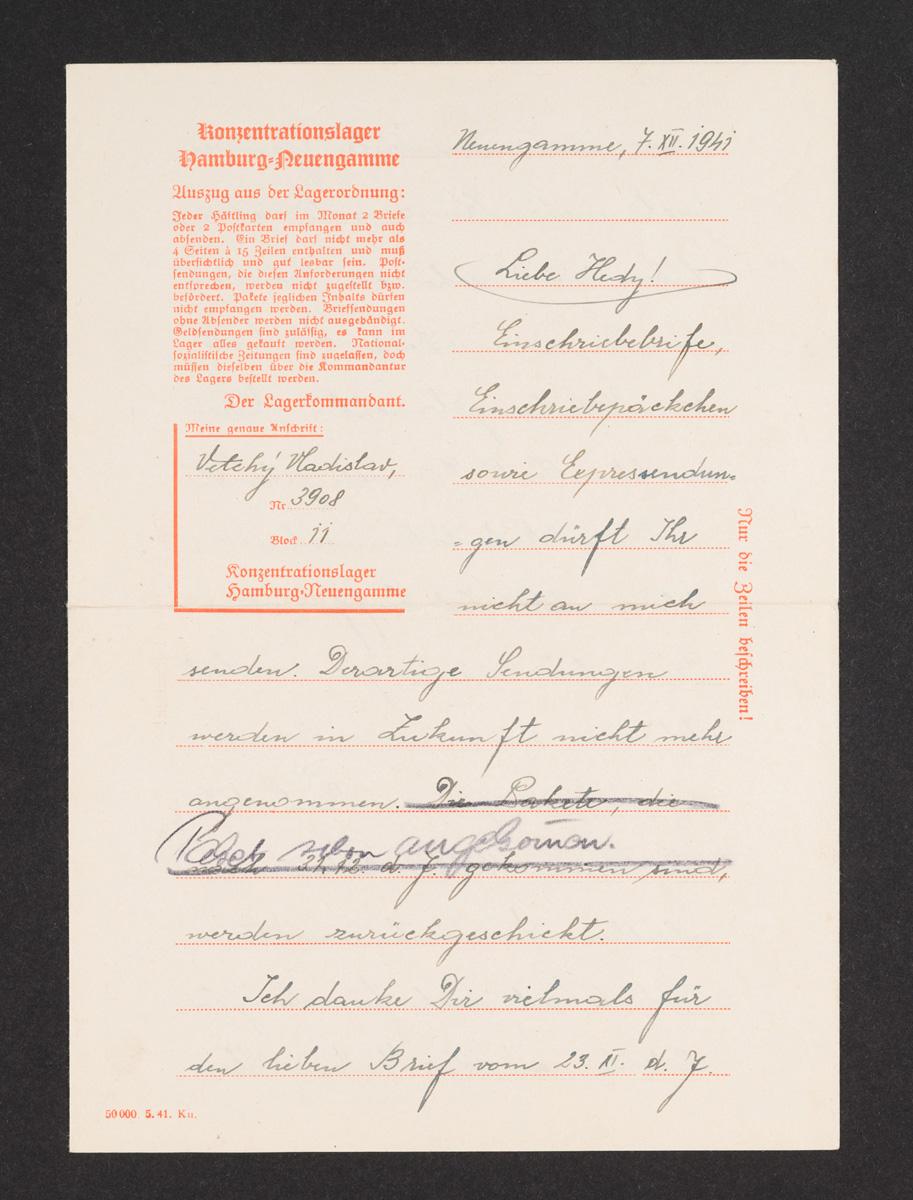 Konzentrationslager
Hamburg-Neuengamme
Auszug aus der Lagerordnung:
Jeder Häftling darf im Monat 2 Briefe
oder 2 Postkarten empfangen und auch
absenden. Ein Brief darf nicht mehr als
4 Seiten à 15 Zeilen enthalten und muß
übersichtlich und gut lesbar sein. Post-
sendungen, die diesen Anforderungen nicht
entsprechen, werden nicht zugestellt bzw.
befördert. Pakete jeglichen Inhalts dürfen
nicht empfangen werden. Briefsendungen
ohne Absender werden nicht ausgehändigt.
Geldsendungen sind zulässig, es kann im
Lager alles gekauft werden. National-
sozialistische Zeitungen sind zugelassen, doch
müssen dieselben über die Kommandantur
des Lagers bestellt werden.
Der Lagerkommandant.
Meine genaue Anschrift:
Vetchý Vladislav,
Nr. 3908
Block 11
Konzentrationslager
Hamburg-Neuengamme
Neuengamme, 7. XII. 1941
Liebe Hedy!
Einschriebebrife,
Einschriebepäckchen
sowie Expressendun=
=gen dürft Ihr
nicht an mich
senden. Derartige Sendungen
werden in Zukunft nicht mehr
angenommen. Die Pakete, die
Paket schon angekom̅en.
nach 31.12. d. J. gekommen sind,
werden zurückgeschickt.
Ich danke Dir vielmals für
den lieben Brief vom 23. XI. d. J.
Nur die Zeilen beschreiben!
50000. 5. 41. Ku.